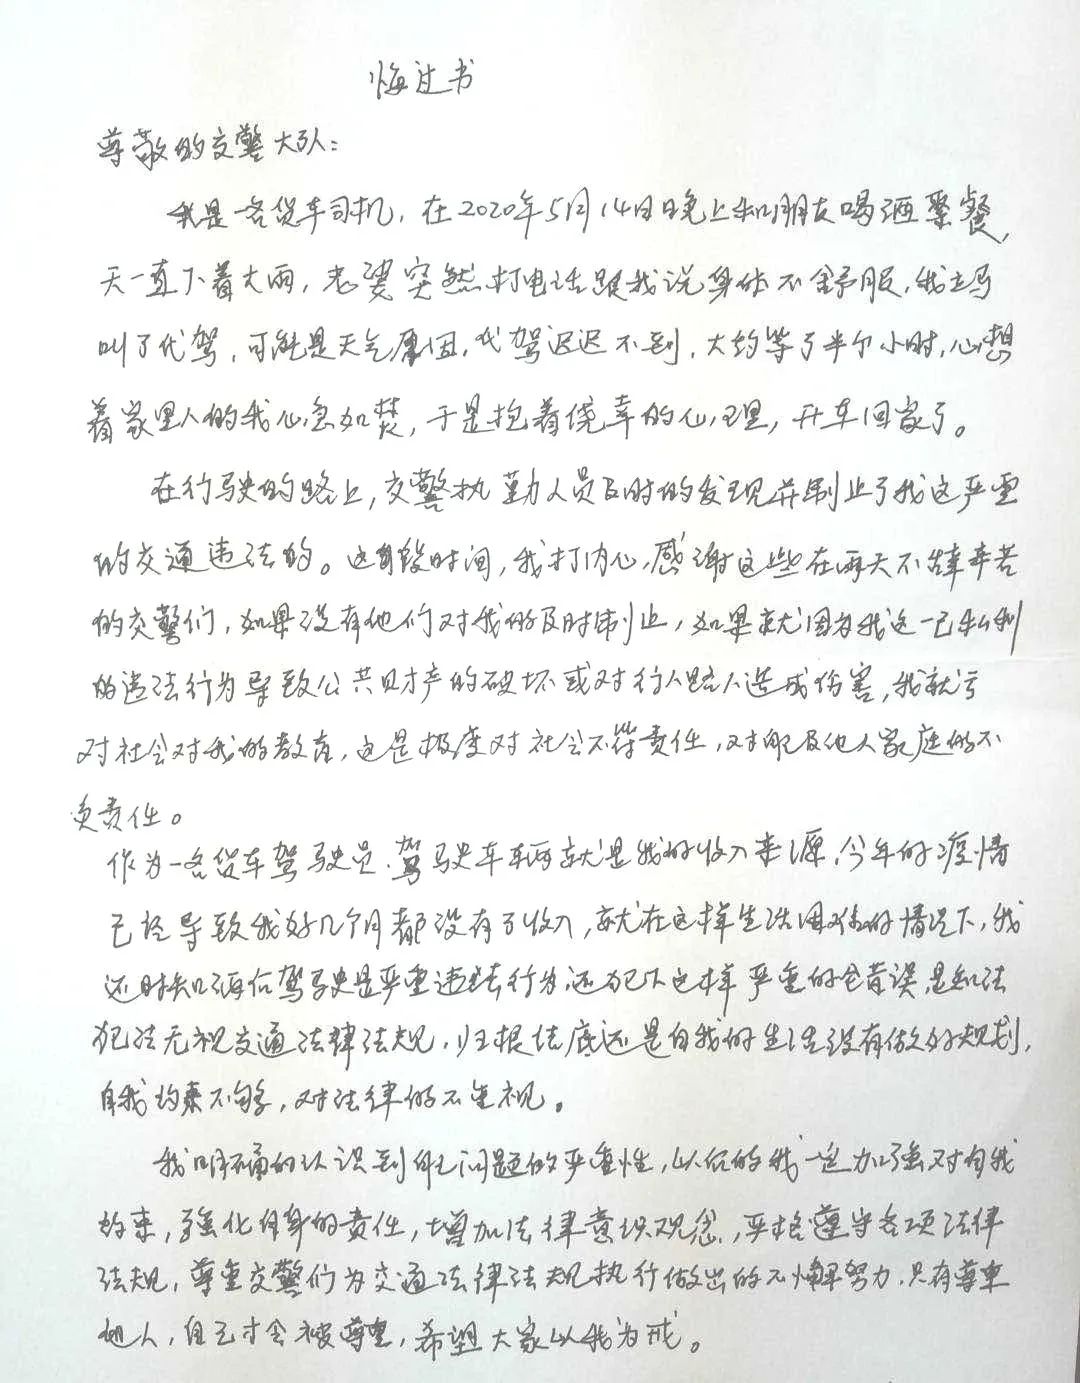 悔过书
尊敬的交警大队：
我是一名货车司机，在2020年5月14日晚上和朋友喝酒聚餐，
天一直下着大雨，老婆突然打电话跟我说身体不舒服，我立马
叫了代驾，可能是天气原因，代驾迟迟不到，大约等了半个小时，心想
着家里人的我心急如焚，于是抱着侥幸的心理，开车回家了。
在行驶的路上，交警执勤人员及时的发现并制止了我这严重
的交通违法的。这段时间，我打内心感谢这些在雨天不辞辛苦
的交警们，如果没有他们对我的及时制止，如果就因为我这一己私利
的违法行为导致公共财产的破坏或对行人路人造成伤害，我就亏
对社会对我的教育，这是极度对社会不负责任，对自己及他人家庭的不
负责任。
作为一名货车驾驶员，驾驶车辆就是我的收入来源，今年的疫情
已经导致我好几个月都没有了收入，就在这样生活困难的情况下，我
还明知酒后驾驶是严重违法行为，还犯下这样严重的错误，是知法
犯法无视交通法律法规，归根结底还是自我的生活没有做好规划，
自我约束不够，对法律的不重视。
我明确的认识到自己问题的严重性，以后的我一定加强对自我
约束，强化自身的责任，增加法律意识观念，严格遵守各项法律
法规，尊重交警们为交通法律法规执行做出的不懈努力，只有尊重
他人，自己才会被尊重，希望大家以我为戒。